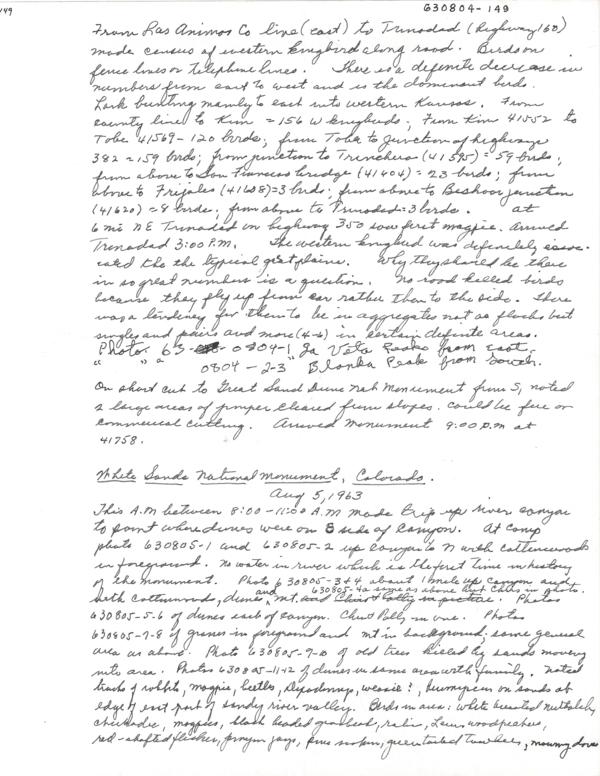 149
630804-149
From Las Animas Co line (east) to Trinadad (highway 160)
made census of western kingbird along road. Birds on
fence lines or telephone lines. There is a definite decrease in
numbers from east to west and is the dominant birds.
Lark bunting mainly to east into western Kansas. From
county line to Kim = 156 W kingbirds; From Kim 41552 to
Tobe 41569 - 120 birds; from Tobe to junction of highways
382 = 159 birds; from junction to Trinchera (41595) = 59 birds;
from above to San Francisco bridge (41604) = 23 birds; from
above to Frijoles (41608) = 3 birds; from above to Beshoar junction
(41620) = 8 birds; from above to Trinadad = 3 birds. at
6 mi NE Trinadad on highway 350 saw first magpie. Arrived
Trinadad 3:00 P.M. The western kingbird was definitely assoc-
iated the the typical great plains. Why they should be there
in so great numbers is a question. No road killed birds
because they fly up from car rather than to the side. There
was a tendency for them to be in aggregates not as flocks but
singles and pairs and more (4-6) in certain definite areas.
Photo. 63- -0804-1 La Veta Peaks from east.
" " 0804-2-3 " Blanka Peak from South.
On short cut to Great Sand Dune Nat Monument from S, noted
2 large areas of juniper cleared from slopes. Could be fire or
commercial cutting. Arrived monument 9:00 P.M at
41758.
White Sands National Monument, Colorado.
Aug 5, 1963
This A.M between 8:00 - 11:00 A.M made trip up river canyon
to point where dunes were on S side of canyon. At camp
photo 630805-1 and 630805-2 up canyon to N with cottonwoods
in foreground. No water in river which is the first time in history
of the monument. Photo 630805-3+4 about 1 mile up canyon and
630805-4a same as above but Chris in photo.
with cottonwoods, dunes and mt. and Chris + Polly in picture. Photos
630805-5-6 of dunes east of canyon. Chris + Polly in one. Photos
630805-7-8 of grasses in foreground and mt in background; same general
area as above. Photo 630805-9-10 of old trees killed by sands moving
into area. Photos 630805-11-12 of dunes in same area with family. Noted
tracks of rabbits, magpie, beetles, Dipodomys, weasel?, on sands at
edge of east part of sandy river valley. Birds in area: white breasted nuthatch,
chickadee, magpies, black headed grosbeak, robin, Lewis woodpeckers,
red-shafted flicker, pinyon jays, pine siskin, greentailed towhees, mourning doves